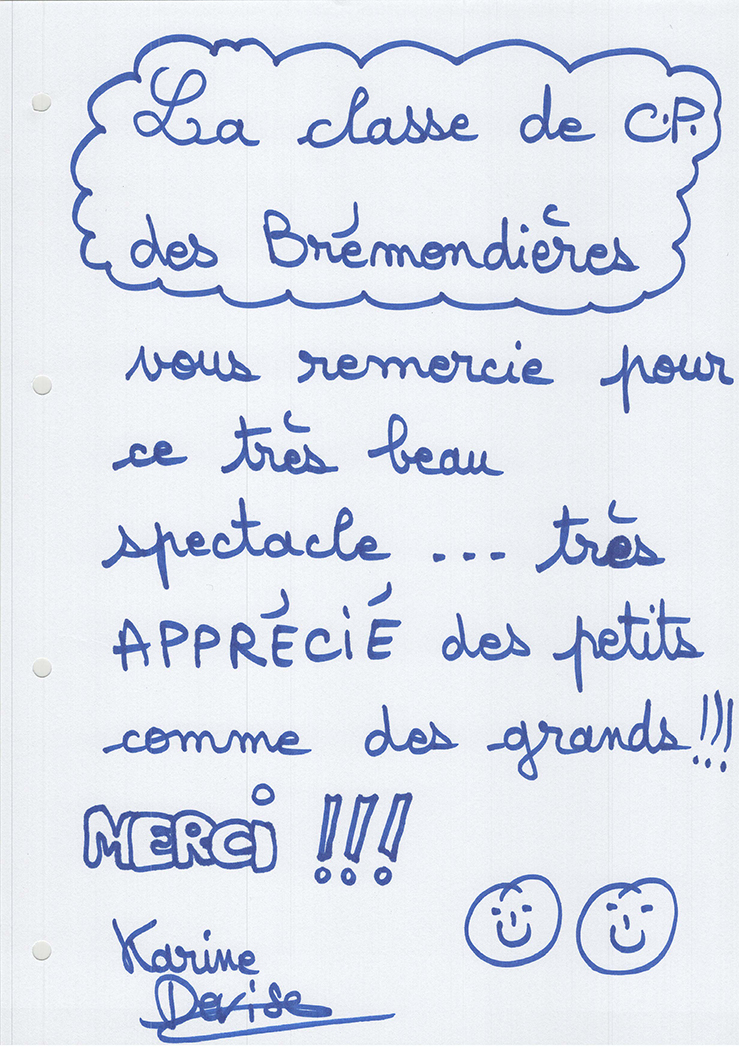 La classe de C.P.
des Brémondières
vous remercie pour
ce très beau
spectacle ... très
APPRÉCIÉ des petits
comme des grands !!!
MERCI !!!
Karine
Devise